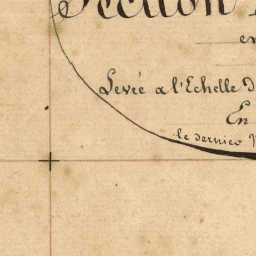 Section
en
Levée a l'Echelle D
En
le dernier